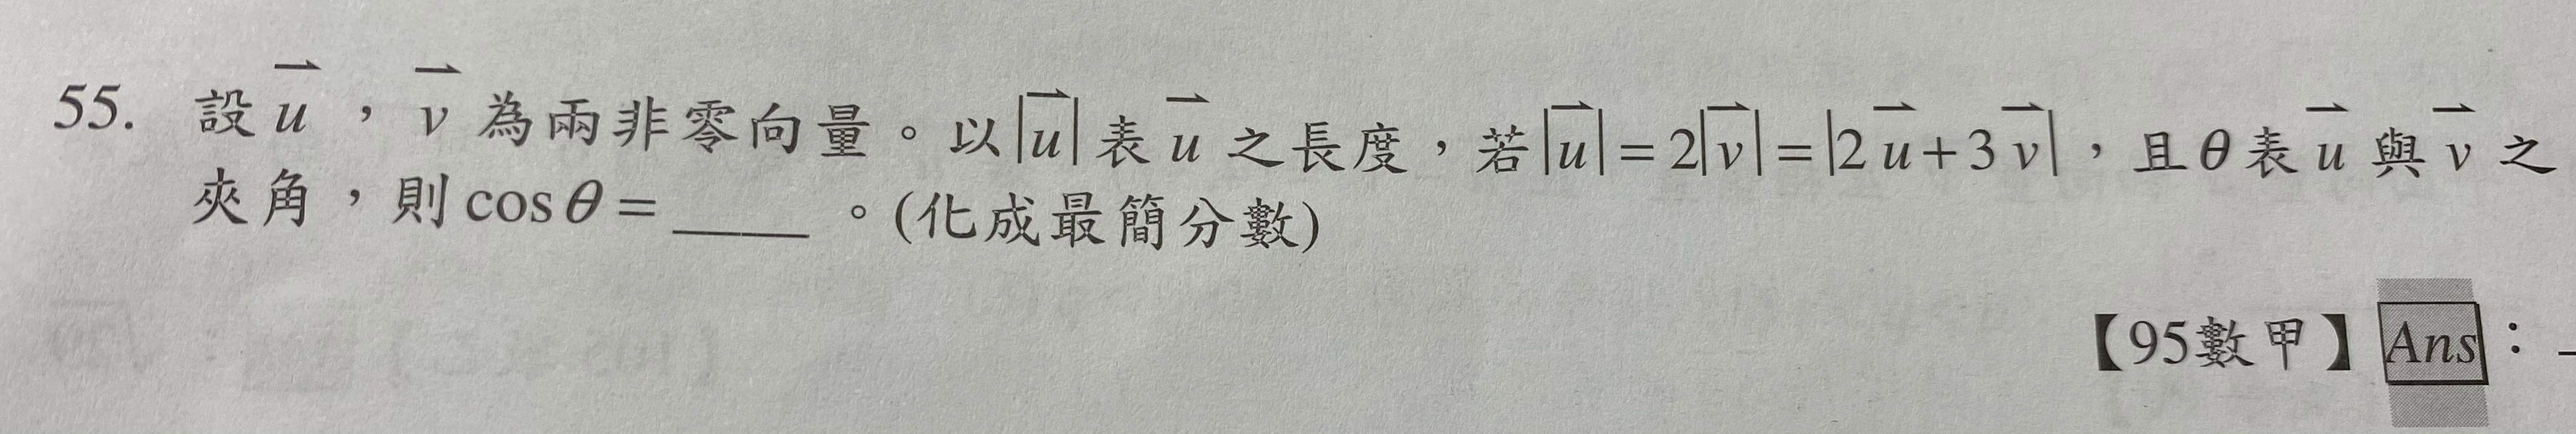 55. 設 u⇀，v⇀ 為兩非零向量。以|u⇀|表 u⇀ 之長度，若|u⇀|=2|v⇀|=|2u⇀+3v⇀|，且θ表 u⇀ 與 v⇀ 之
夾角，則 cosθ=____。(化成最簡分數)
【95數甲】Ans：